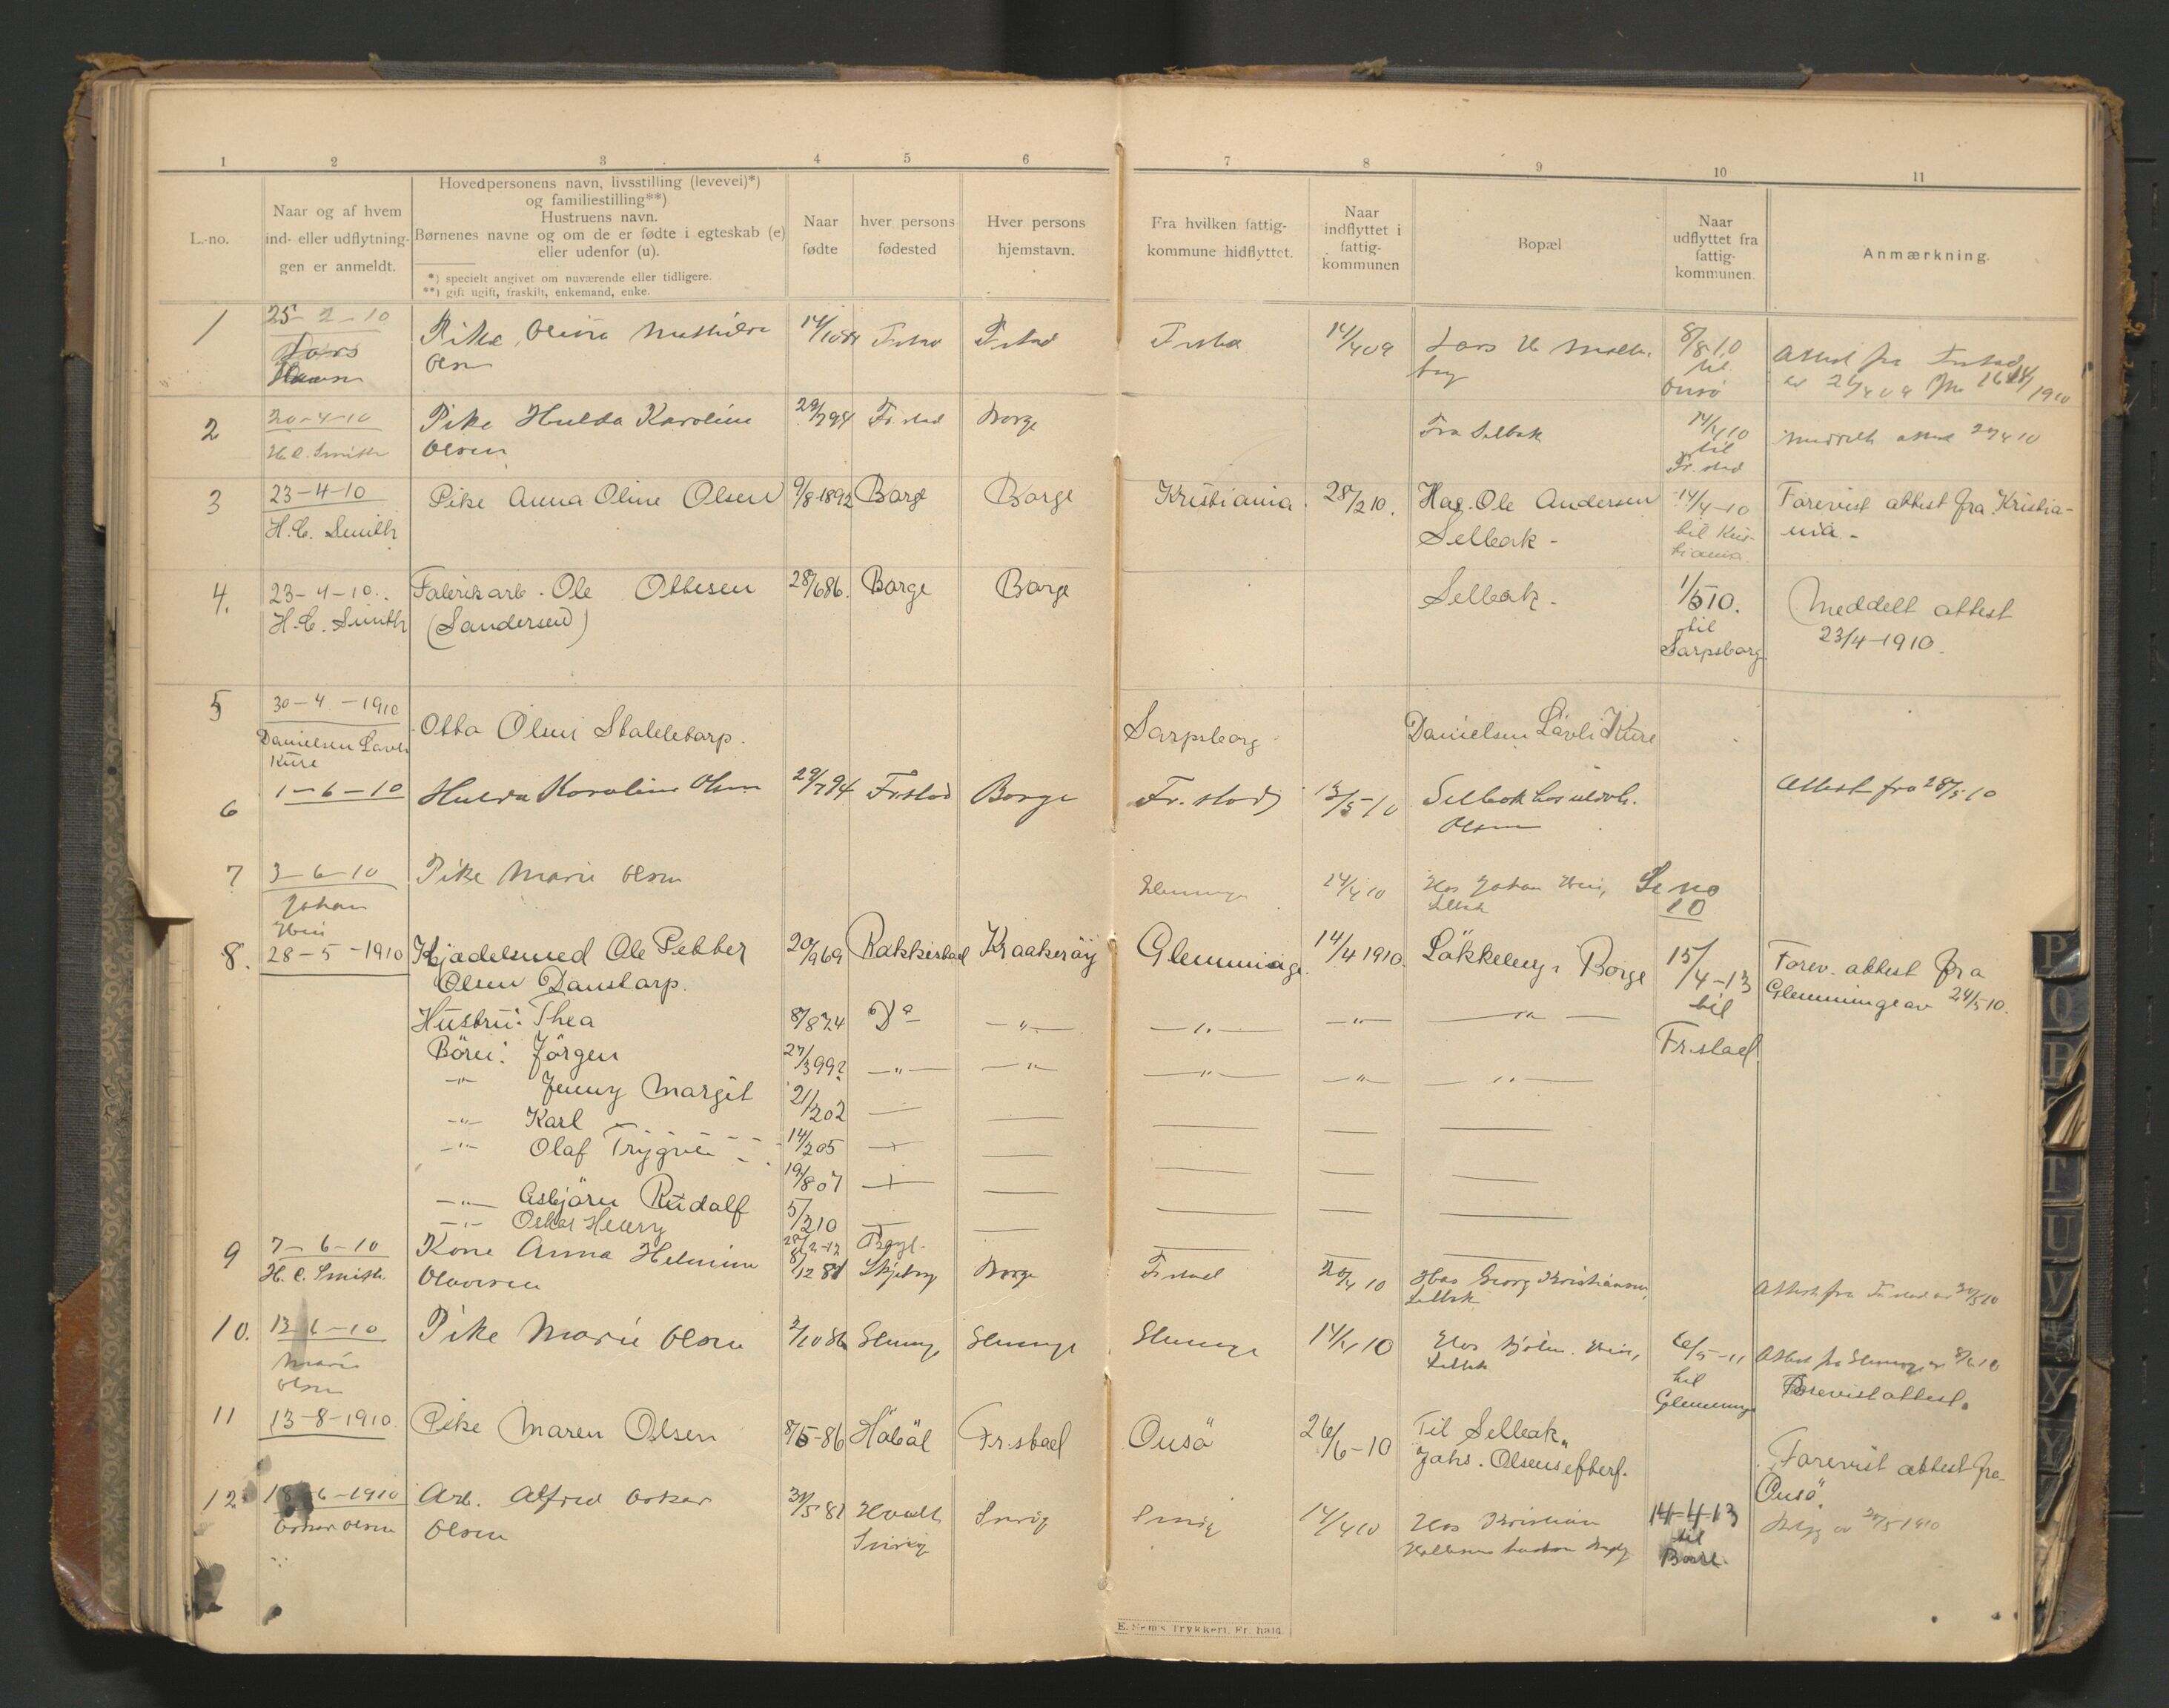 1 2 3 4 5 6 7 8 9 10 11
L.-no.
Naar og af hvem
ind- eller udflytning-
gen er anmeldt.
Hovedpersonens navn, livsstilling (levevei)*)
og familiestilling**)
Hustruens navn.
Børnenes navne og om de er fødte i egteskab (e)
eller udenfor (u).
*) specielt angivet om nuværende eller tidligere.
**) gift ugift, fraskilt, enkemand, enke.
Naar
fødte
hver persons
fødested
Hver persons
hjemstavn.
Fra hvilken fattig-
kommune hidflyttet.
Naar
indflyttet i
fattig-
kommunen
Bopæl
Naar
udflyttet fra
fattig-
kommunen.
Anmærkning.
1
25-2-10
Lars
Hansen
Pike Olina Mathilde
Olsen
Fr.stad
Fr.stad
Fr.stad
14/4 09
8/8 10
til
Onsö
Attest fra Fr.stad
2
20-4-10
H. C. Smith
Pike Hulda Karoline
Olsen
29/7 94
Fr. stad
Borge
Fra Selbak
14/4 10
til
Fr. stad
Meddelt attest 20/4 10
3
23-4-10
H. C. Smith
Pike Anna Oline Olsen
9/8-1892
Borge
Borge
Kristiania.
28/2 10.
Hos Ole Andersen
Selbak -
14/4-10
til Kris-
tiania
Forevist attest fra Kristia-
nia -
4.
23-4-10.
H. C. Smith
Fabrikarb. Ole Ottesen
(Sandersen)
28/6 86.
Borge
Borge
Selbak -
1/5 10.
til
Sarpsborg.
Meddelt attest
23/4-1910.
5
30-4-1910
Danielsen Løvli
Kure
Otto Olsen Stabletorp.
Sarpsborg
Danielsen Løvli Kure
6
1-6-10
Hulda Karoline Olsen
29/7 94
Fr.stad
Borge
Fr. stad
13/5-10
Selbak hos
Olsen
Attest fra 28/5 10
7
3-6-10
Johan
Pike Marie Olsen
Glemminge
14/4 10
Hos Johan
Selbak
Se no
10
8.
28-5-1910
Kjedelsmed Ole Petter
Olsen Danstorp.
20/9 69
Rakkestad
Kraakeröy
Glemminge.
14/4 1910.
Løkkeberg i Borge
15/4-13
til
Fr.stad.
Forev. attest fra
Glemminge av 24/5 10.
Hustru: Thea
8/8 74
Do
—"—
—"—
—"—
—"—
Börn: Jörgen
27/3 99?
—"—
—"—
—"—
—"—
—"—
—"— Jenny Margit
21/2 02
—"— Karl
14/2 05
—"— Olaf Trygve
19/8 07
—"— Asbjörn Rudolf
5/2 10
—"— Oskar Henry
Borge
9
7-6-10
H. C. Smith
Kone Anna Helmine
8/12 81
Skjeberg
Borge
Fr.stad
20/4 10
Hos Georg Kristiansen,
Selbak
Attest fra Fr.stad av 30/5 10
10.
13-6-10
Marie
Olsen
Pike Marie Olsen
2/10 86
Glemminge
Glemminge
Glemminge
14/4 10
Selbak
6/5-11
til
Glemminge
Attest fra Glemminge av 8/6 10
Forevist attest.
11
13-8-1910.
Pike Maren Olsen
8/5-86
Håböl
Fr.stad
Onsö
26/6-10
Til Selbak,
Johs. Olsens efterf.
Forevist attest fra
Onsö.
12
18-6-1910
Oskar Olsen
Arb. Alfred Oskar
Olsen
31/5 81
14/4 10
Hos Kristian
14-4-13
til
E. Sem's Trykkeri, Fr. hald.
P
Q
T
U
V
X
Y